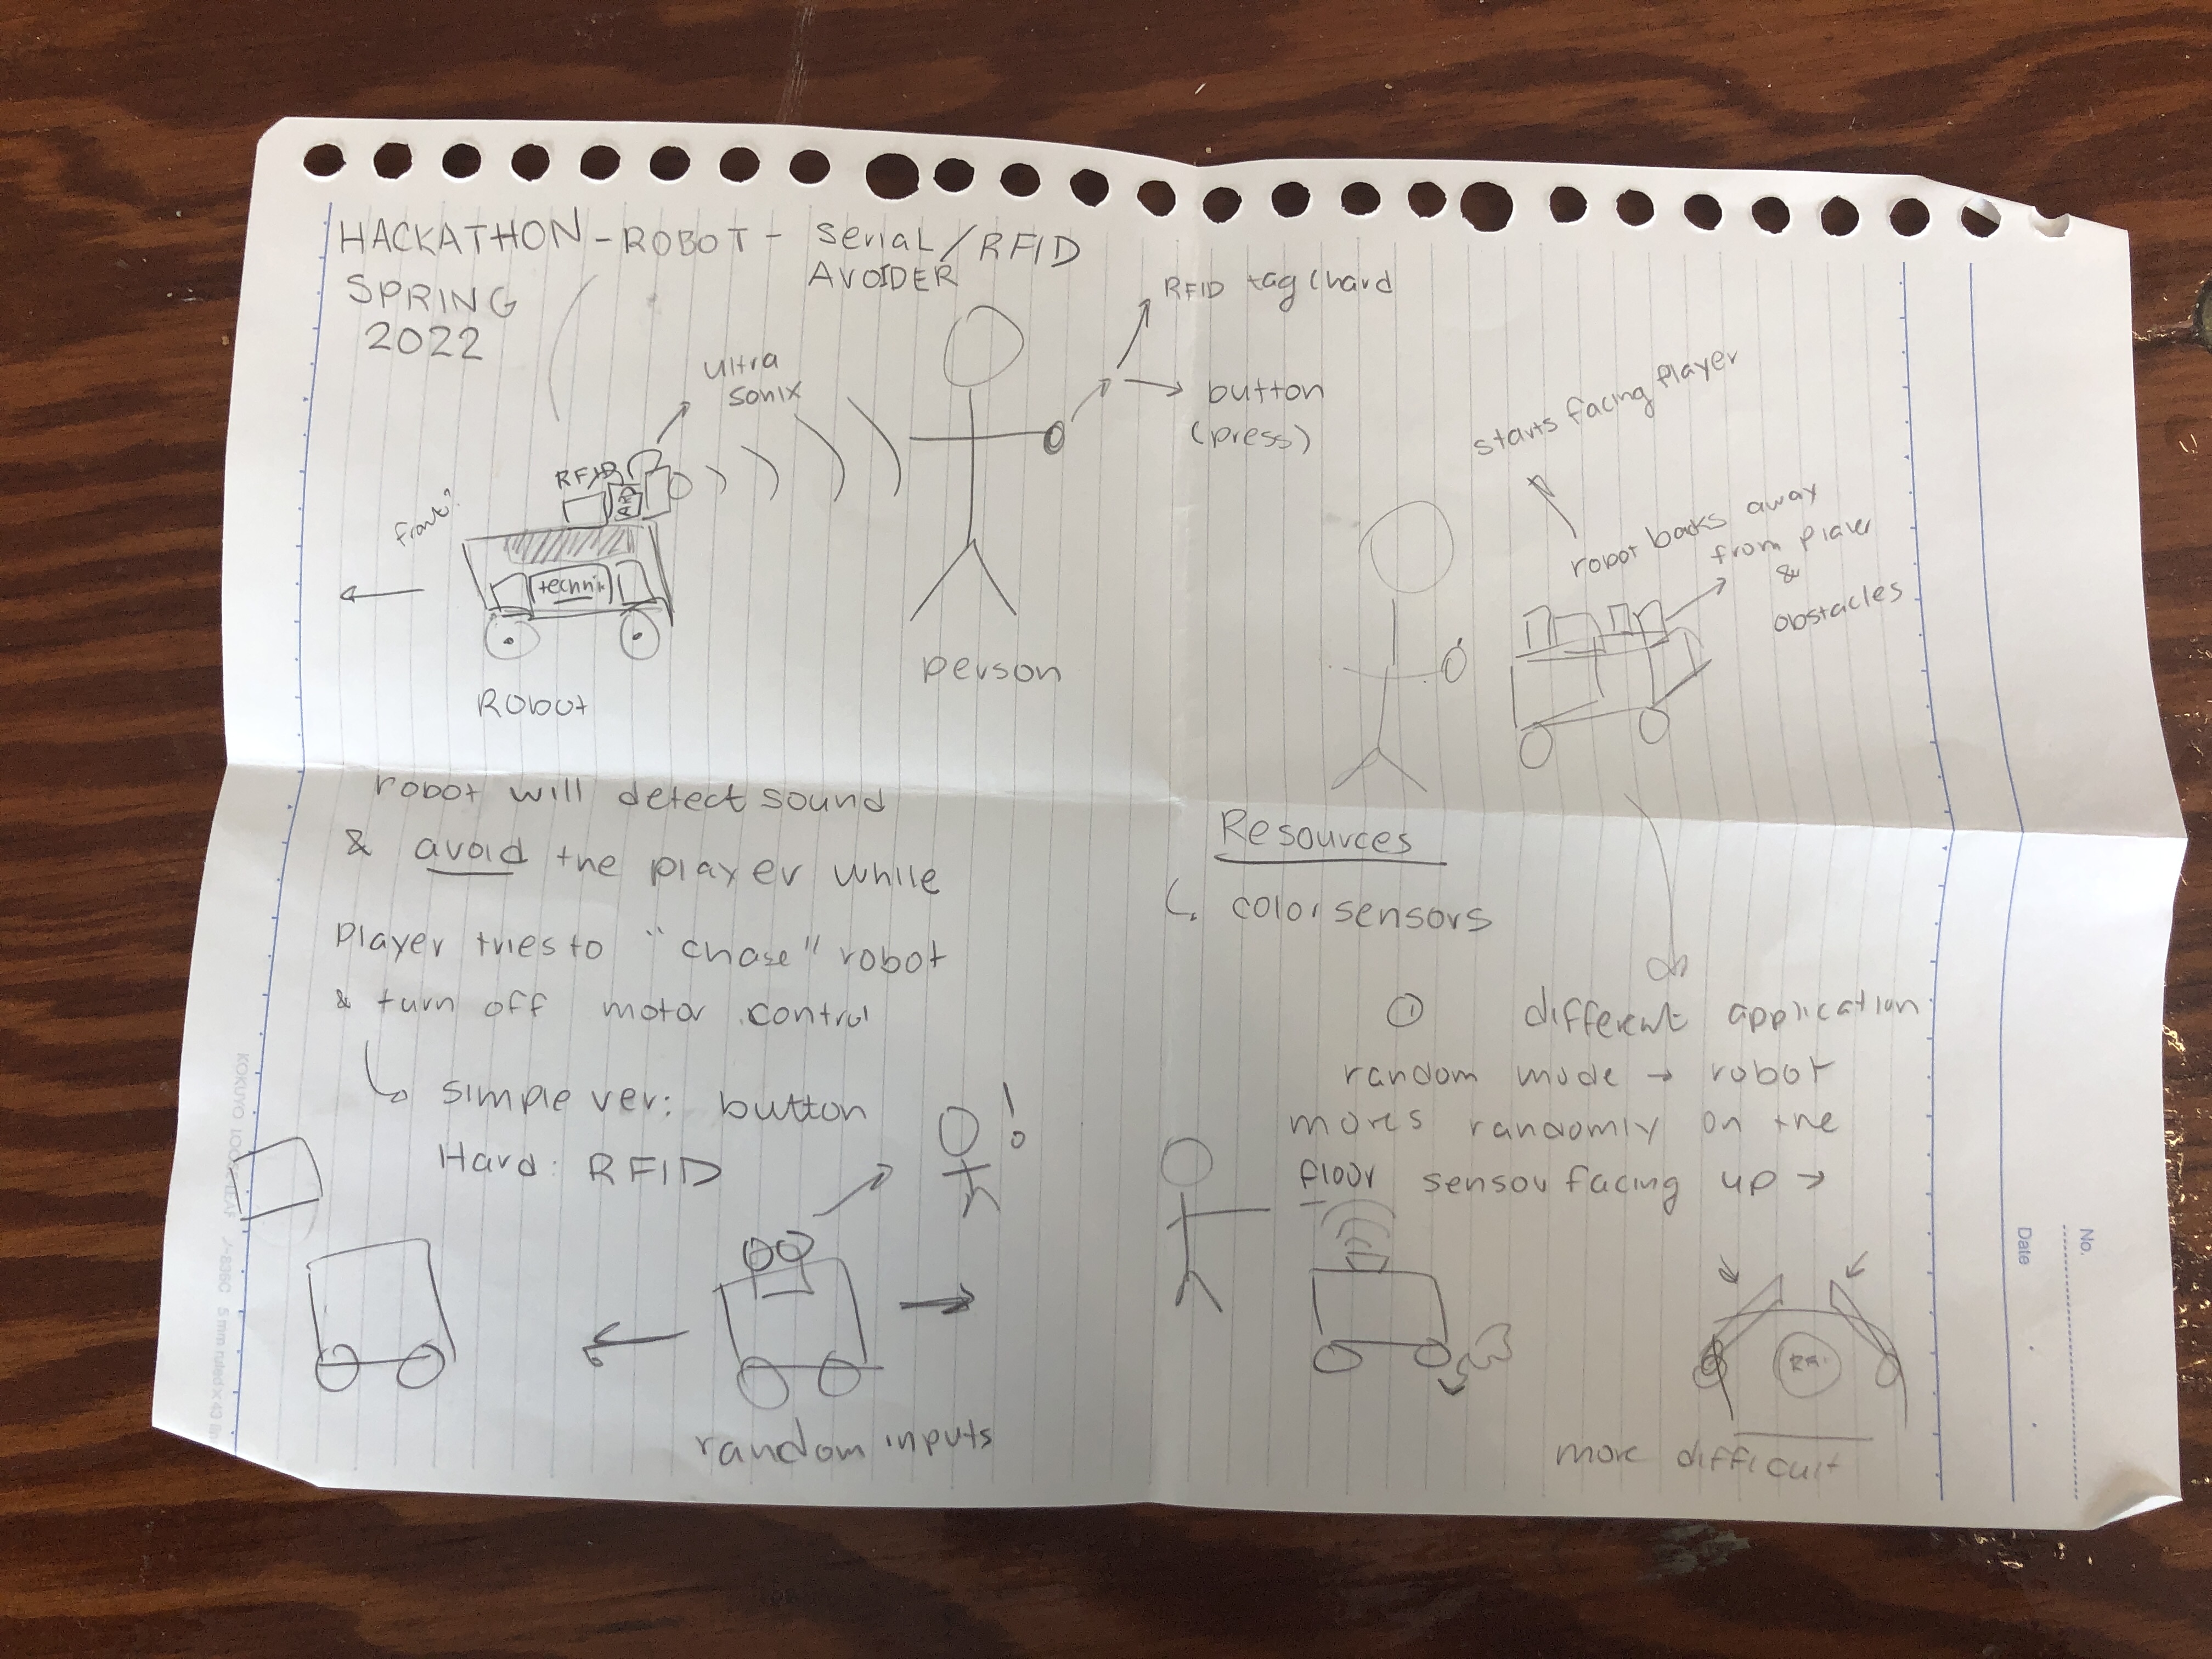 HACKATHON - ROBOT - serial/RFID
AVOIDER
SPRING
2022
ultra
sonix
RFID
front?
technic
Robot
person
RFID tag (hard
button
(press)
starts facing player
robot backs away
from player
&
obstacles
robot will detect sound
& avoid the player while
player tries to "chase" robot
& turn off motor control
simple ver: button
Hard: RFID
random inputs
Resources
color sensors
① different application
random mode → robot
moves randomly on the
floor sensor facing up →
more difficult
KOKUYO LOOSE-LEAF
5 mm ruled x 43
No.
Date